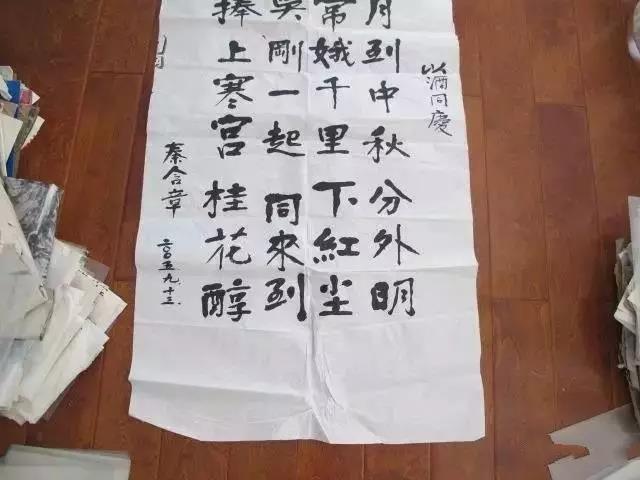 以酒同慶
月到中秋分外明
常娥千里下紅尘
吳剛一起同來到
捧上寒宮桂花醇
秦含章
二〇〇五九十三